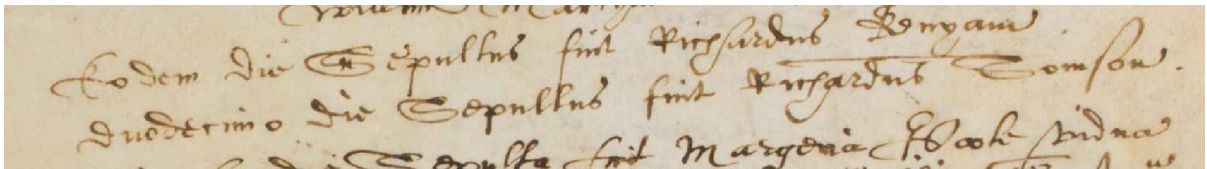 Eodem die Sepultus fuit Richardus Benyam
duodecimo die Sepultus fuit Richardus Somson.
Sepulta fuit Margeria Poole vidua